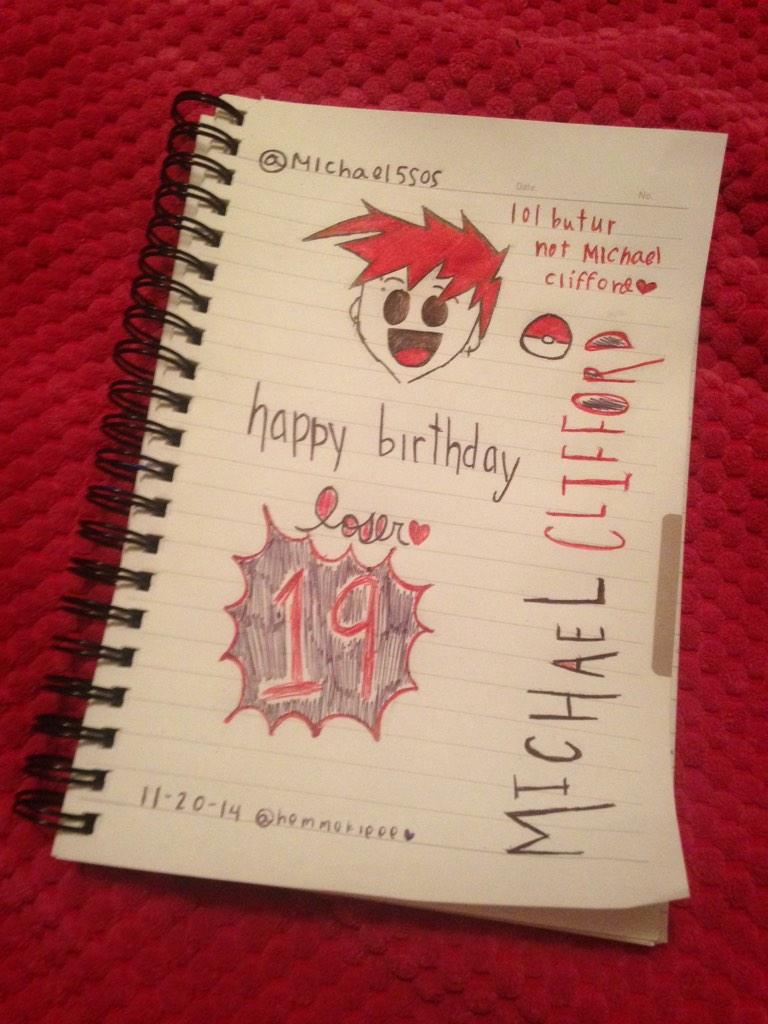 @Michael5SOS
Date
No.
lol but ur
not Michael
Clifford
happy birthday
loser
19
MICHAEL CLIFFORD
11-20-14